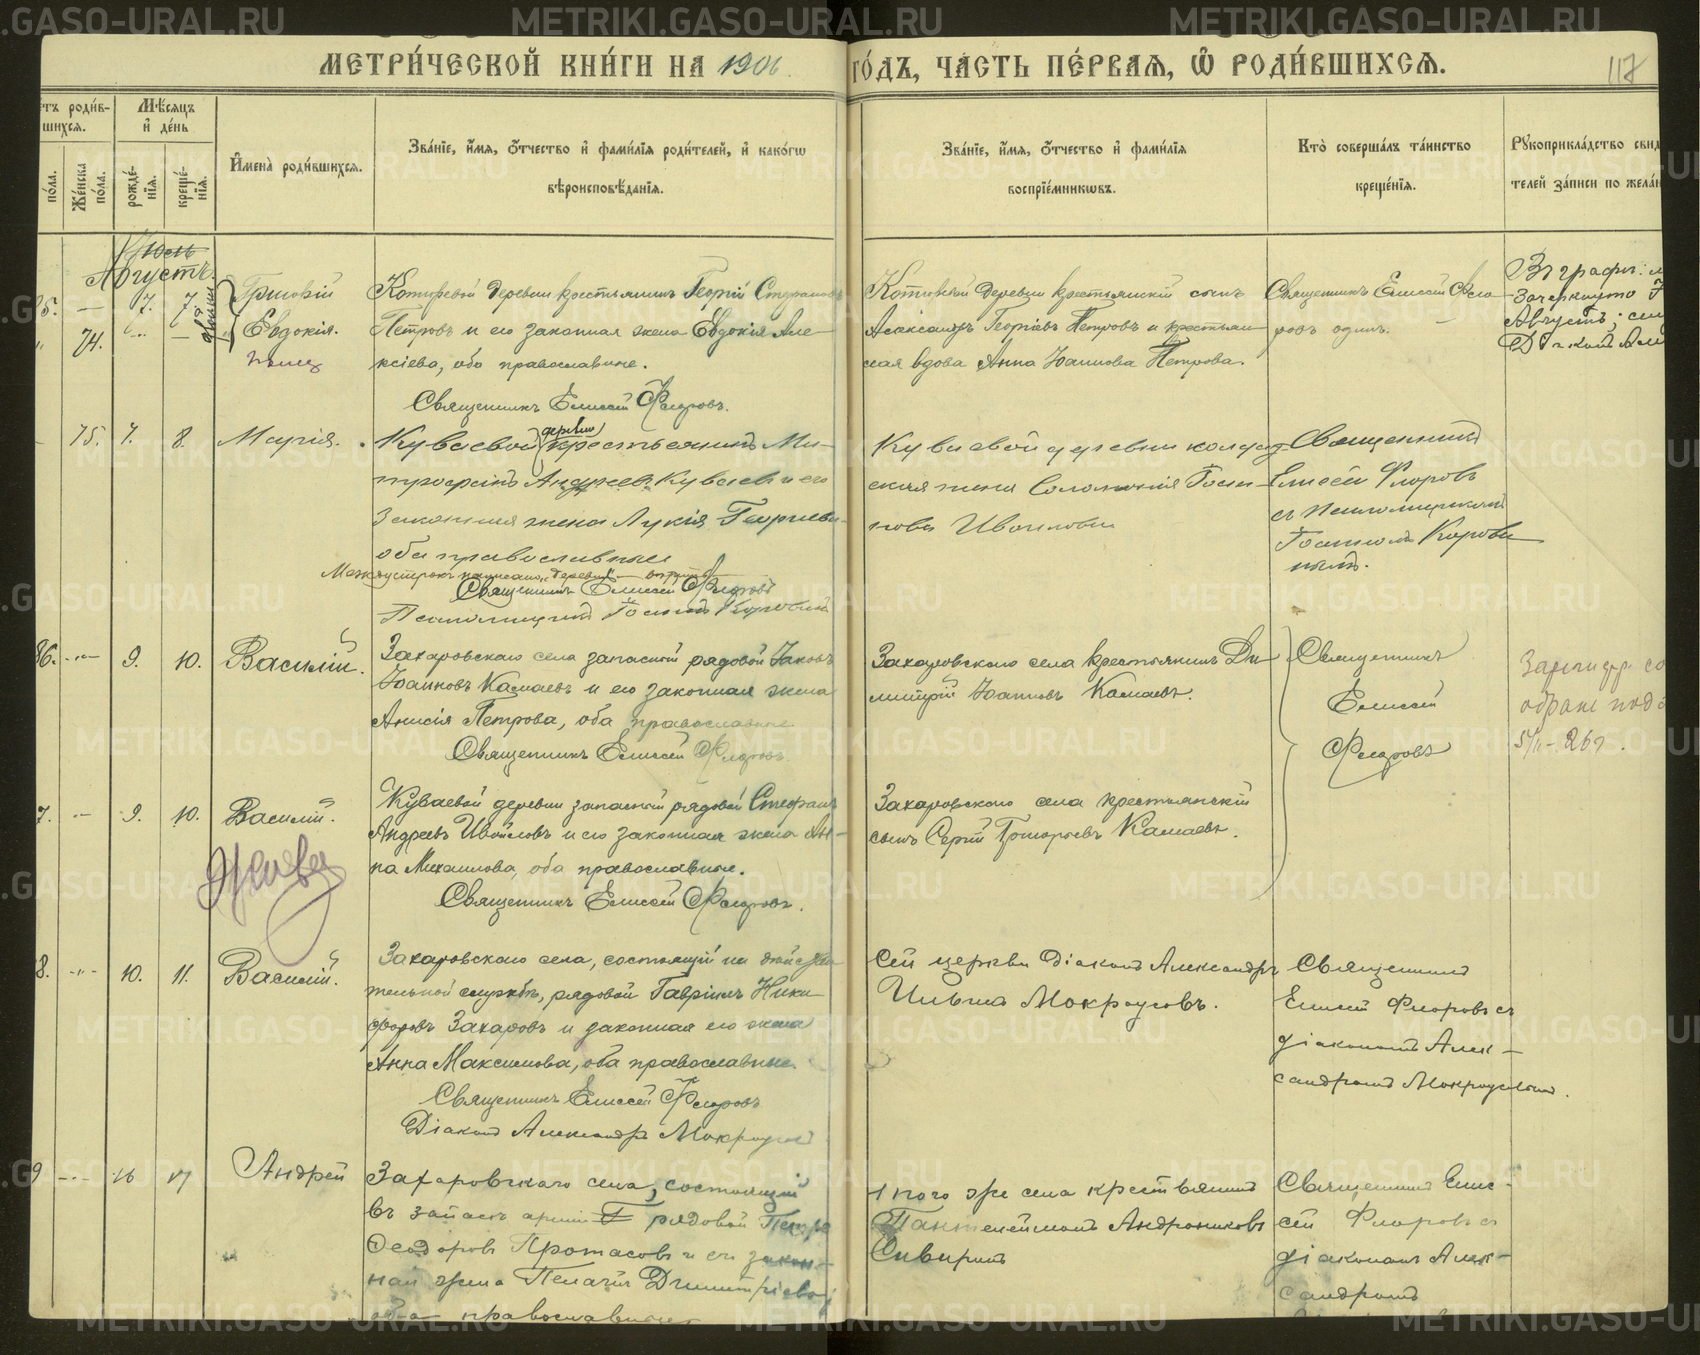 МЕТРИ́ЧЕСКОЙ КНИ́ГИ НА 1906 ГО́ДЪ, ЧА́СТЬ ПЕ́РВАЯ, Ѡ РОДИ́ВШИХСЯ.
117
тъ роди́в-
шихся.
Мѣ́сяцъ
и҆ де́нь
по́ла.
Же́нска
по́ла.
рожде́-
нїя.
креще́-
нїя.
И҆мена̀ роди́вшихся.
Зва́нїе, и҆́мя, ѻ҆́тчество и҆ фами́лїя роди́телей, и҆ како́гѡ
вѣроисповѣ́данїя.
Зва́нїе, и҆́мя, ѻ҆́тчество и҆ фами́лїя
воспрїе́мникѡвъ.
Кто̀ соверша́лъ та́инство
креще́нїя.
Рꙋкоприкла́дство свид
телей за́писи по жела́н
Іюль
Августъ.
85. — 7. 7.
74.
Григорій
Евдокія.
Котюревой деревни крестьянинъ Георгій Стефановъ
Петровъ и его законная жена Евдокія Але-
ксіева, оба православные.
Священникъ Елисей Флоровъ.
Котюревой деревни крестьянскій сынъ
Александръ Георгіевъ Петровъ и крестьян-
ская вдова Анна Іоаннова Петрова.
Священникъ Елисей Фло-
ровъ одинъ.
Въ графѣ: м
зачеркнуто
Августъ; сіи
75. 7. 8. Марія.
Куваевой деревни крестьянинъ Ми-
трофанъ Андреевъ Куваевъ и его
законная жена Лукія Георгиева
оба православные
Межустрокъ написано "деревни"
Священникъ Елисей Флоровъ
Псаломщикъ Іоаннъ Коровинъ
Куваевой деревни солдат-
ская жена Соломонія
Ивойлова
Священникъ
Елисей Флоровъ
съ псаломщикомъ
Іоанномъ Корови
нымъ.
86. -"- 9. 10. Василій.
Захаровскаго села запасной рядовой Іаковъ
Іоанновъ Камаевъ и его законная жена
Анисія Петрова, оба православные
Священникъ Елисей Флоровъ.
Захаровскаго села крестьянинъ Ди-
митрій Іоанновъ Камаевъ.
Священникъ
Елисей
Флоровъ
7. — 9. 10. Василій.
Куваевой деревни запасной рядовой Стефанъ
Андреевъ Ивойловъ и его законная жена Ан-
на Михаилова, оба православные.
Священникъ Елисей Флоровъ.
Захаровскаго села крестьянскій
сынъ Сергій Григорьевъ Камаевъ.
8. -"- 10. 11. Василій.
Захаровскаго села, состоящій на дѣйстви-
тельной службѣ, рядовой Гавріилъ Ники-
форовъ Захаровъ и законная его жена
Анна Максимова, оба православные
Священникъ Елисей Флоровъ
Діаконъ Александръ Мокроусовъ
Сей церкви Діаконъ Александръ
Ильинъ Мокроусовъ.
Священникъ
Елисей Флоровъ съ
діакономъ Алек-
сандромъ Мокроусовымъ.
9 -"- 16 17 Андрей
Захаровскаго села, состоящій
въ запасѣ арміи рядовой Петръ
Ѳеодоровъ Протасовъ и его закон-
ная жена Пелагія Димитріева,
оба православные
того же села крестьянинъ
Пантелеймонъ Андрониковъ
Священникъ Елис-
сей Флоровъ съ
діакономъ Алек-
сандромъ